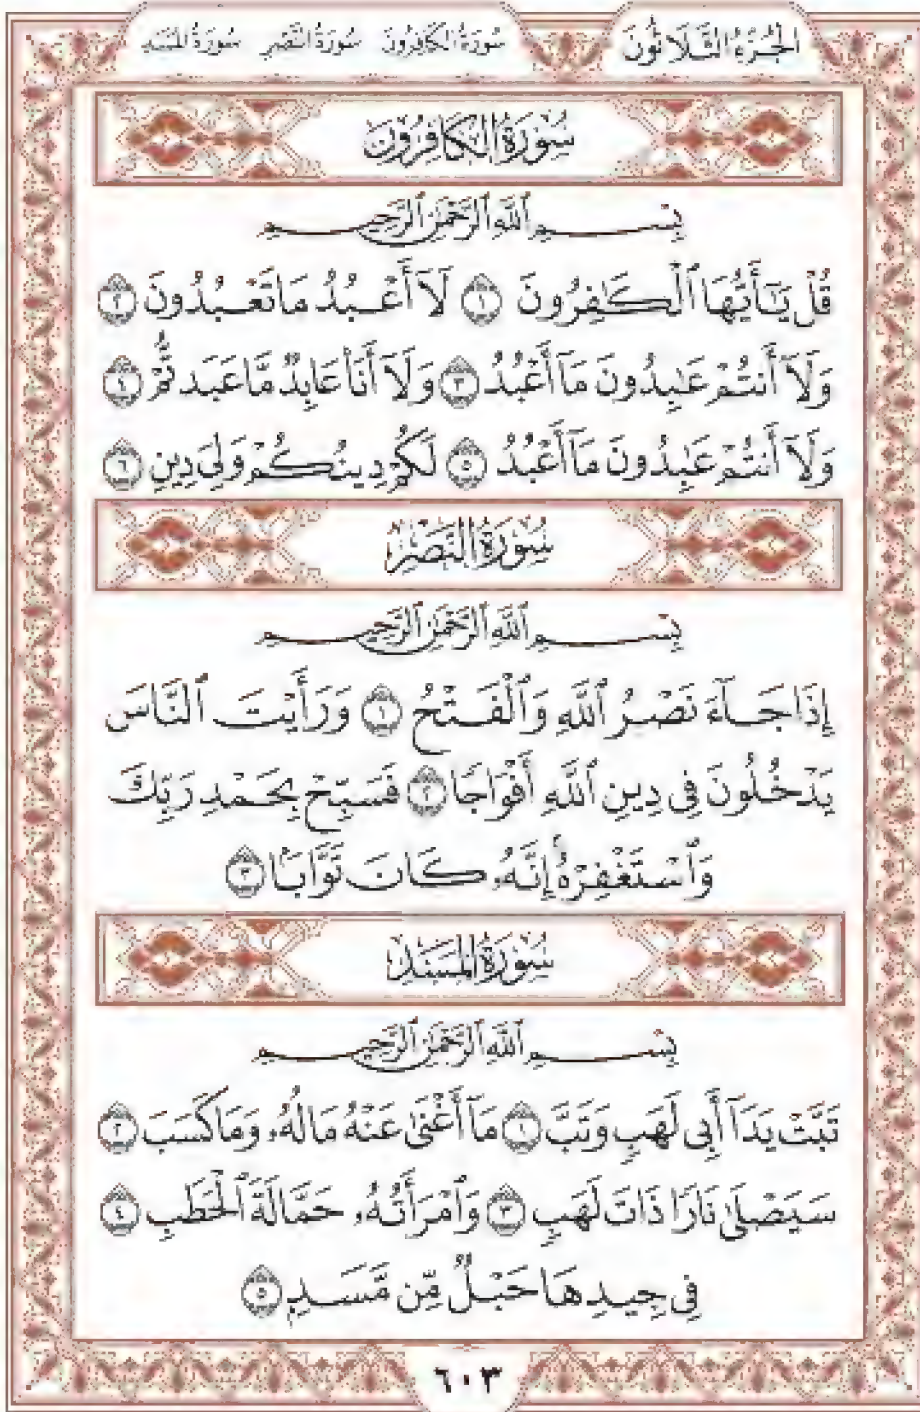 الجُزْءُ الثَّلَاثُونَ سُورَةُ الكَافِرُونَ سُورَةُ النَّصْرِ سُورَةُ المَسَدِ
سُورَةُ الكَافِرُونَ
بِسْمِ ٱللَّهِ ٱلرَّحْمَٰنِ ٱلرَّحِيمِ
قُلْ يَٰٓأَيُّهَا ٱلْكَٰفِرُونَ ١ لَآ أَعْبُدُ مَا تَعْبُدُونَ ٢
وَلَآ أَنتُمْ عَٰبِدُونَ مَآ أَعْبُدُ ٣ وَلَآ أَنَا۠ عَابِدٌ مَّا عَبَدتُّمْ ٤
وَلَآ أَنتُمْ عَٰبِدُونَ مَآ أَعْبُدُ ٥ لَكُمْ دِينُكُمْ وَلِيَ دِينِ ٦
سُورَةُ النَّصْرِ
بِسْمِ ٱللَّهِ ٱلرَّحْمَٰنِ ٱلرَّحِيمِ
إِذَا جَآءَ نَصْرُ ٱللَّهِ وَٱلْفَتْحُ ١ وَرَأَيْتَ ٱلنَّاسَ
يَدْخُلُونَ فِى دِينِ ٱللَّهِ أَفْوَاجًا ٢ فَسَبِّحْ بِحَمْدِ رَبِّكَ
وَٱسْتَغْفِرْهُ ۚ إِنَّهُۥ كَانَ تَوَّابًۢا ٣
سُورَةُ المَسَدِ
بِسْمِ ٱللَّهِ ٱلرَّحْمَٰنِ ٱلرَّحِيمِ
تَبَّتْ يَدَآ أَبِى لَهَبٍ وَتَبَّ ١ مَآ أَغْنَىٰ عَنْهُ مَالُهُۥ وَمَا كَسَبَ ٢
سَيَصْلَىٰ نَارًا ذَاتَ لَهَبٍ ٣ وَٱمْرَأَتُهُۥ حَمَّالَةَ ٱلْحَطَبِ ٤
فِى جِيدِهَا حَبْلٌ مِّن مَّسَدٍۭ ٥
٦٠٣